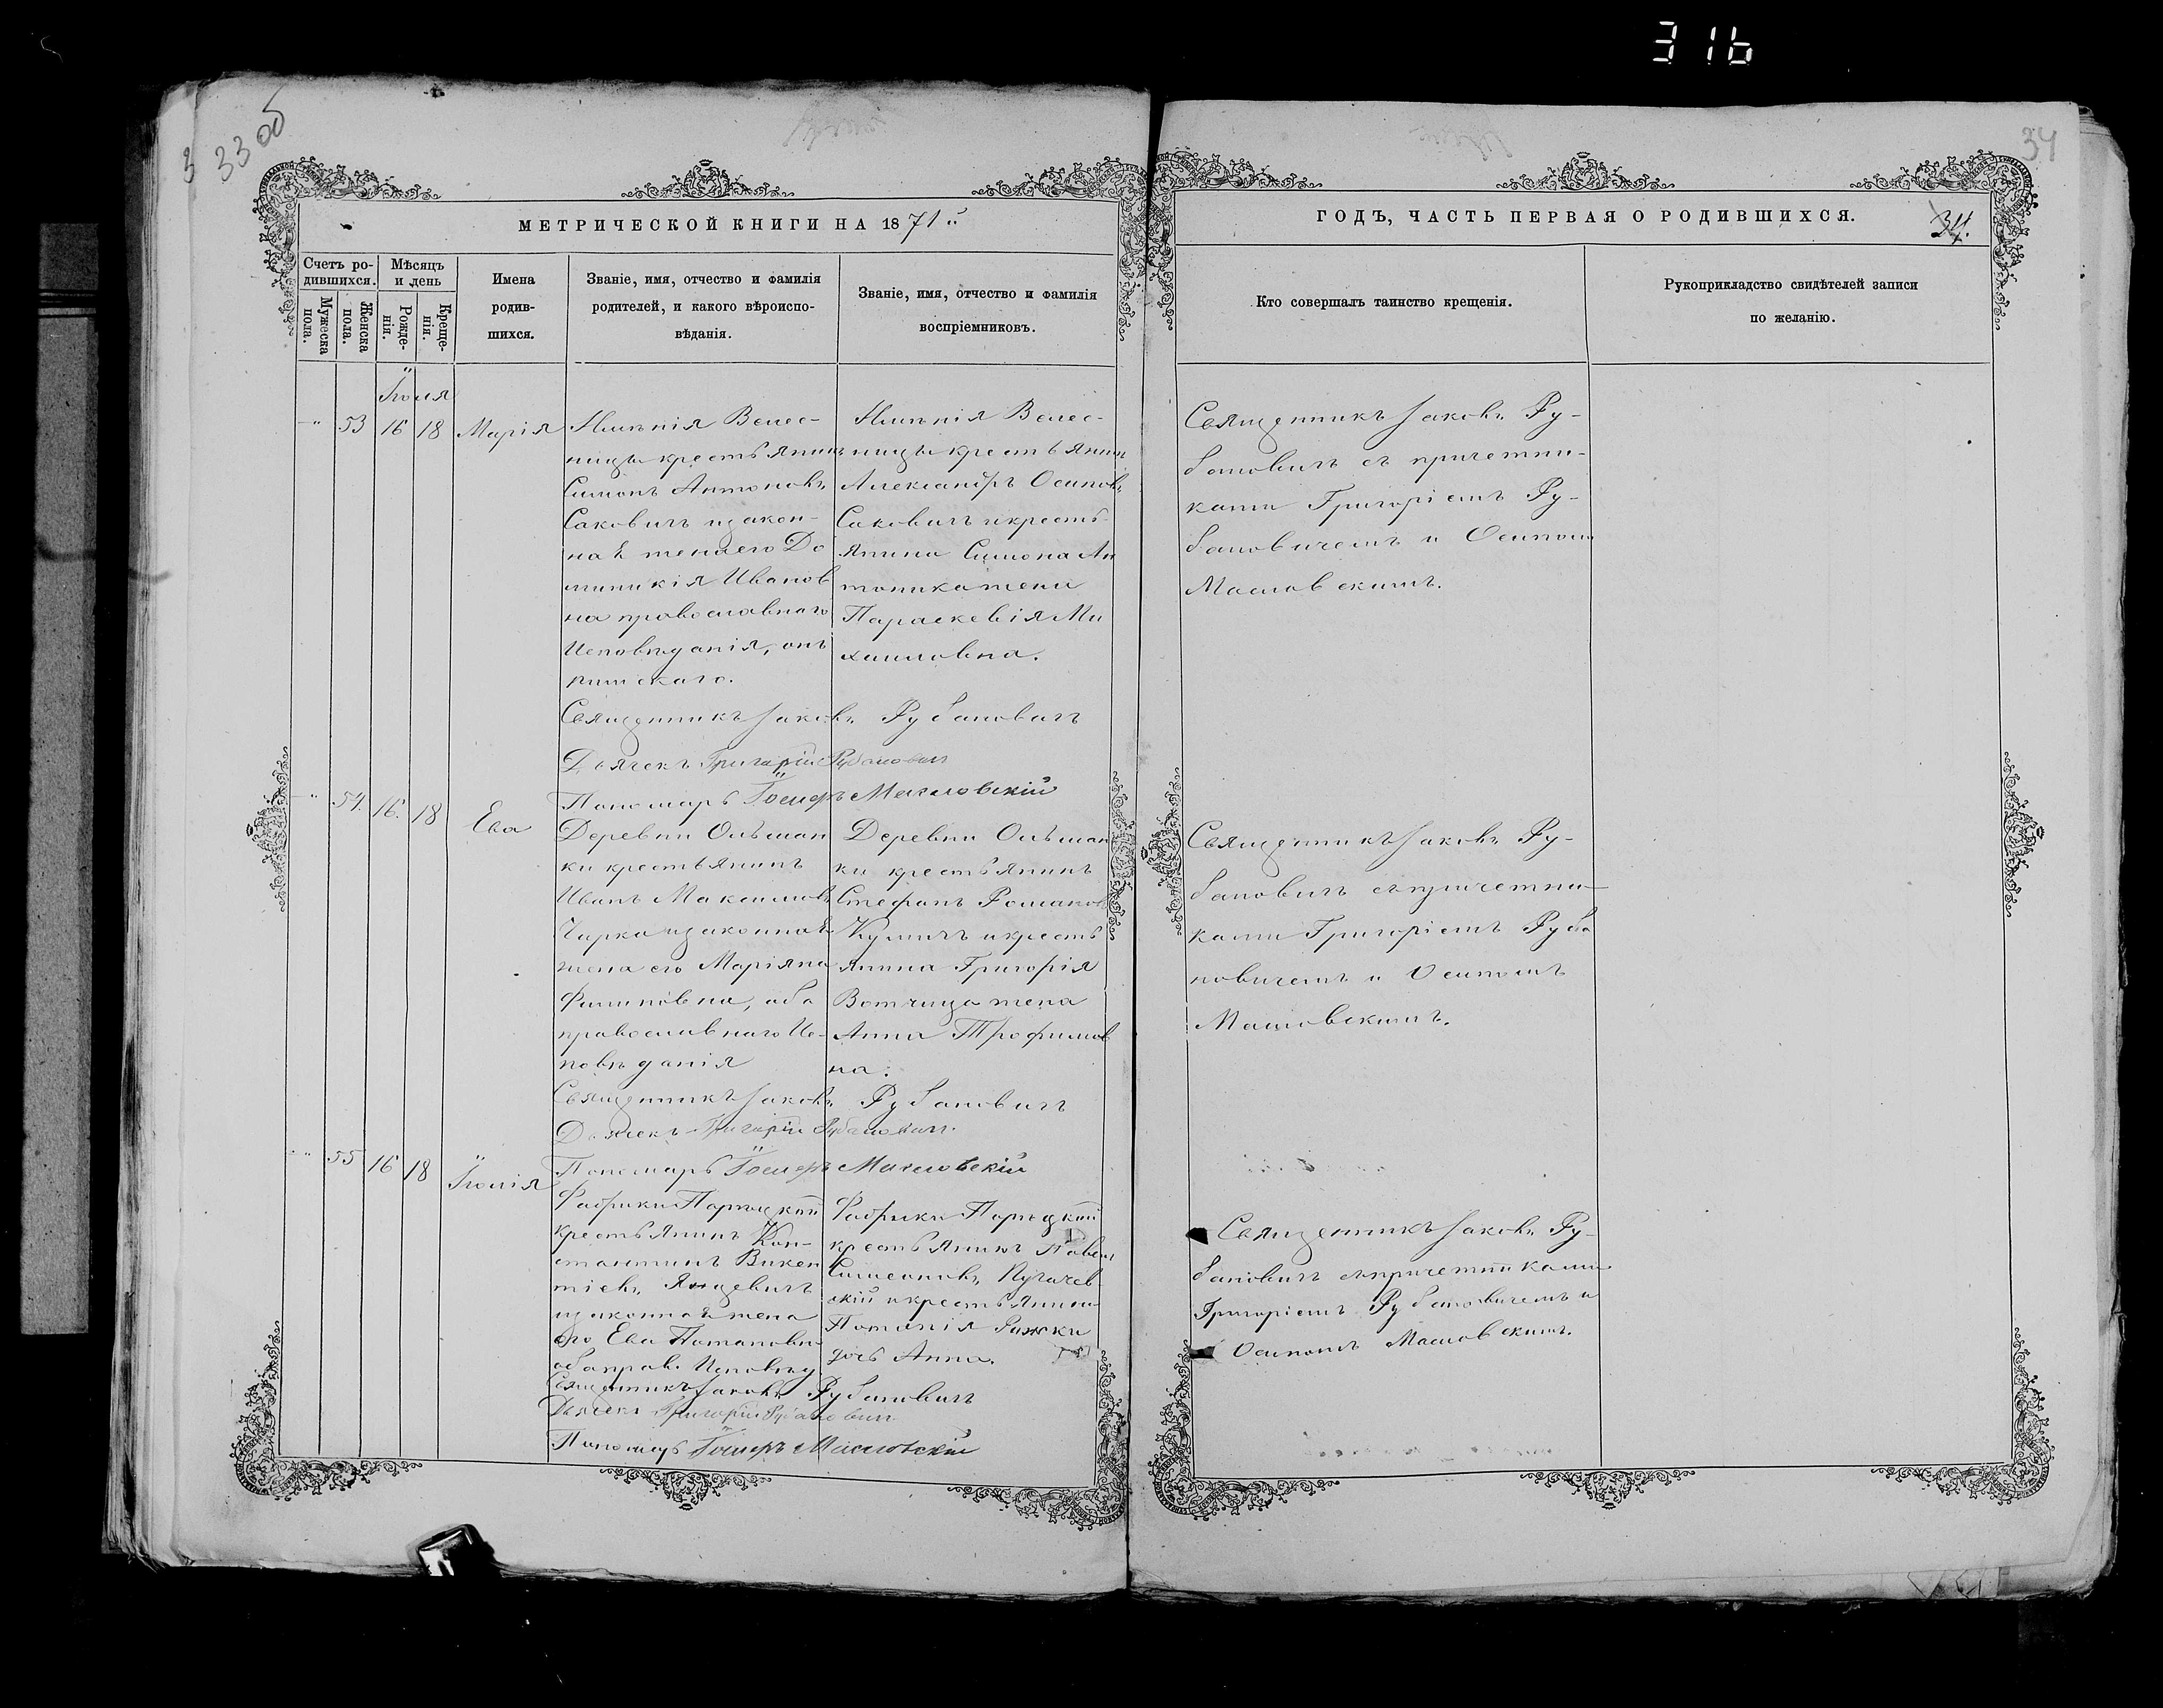 316
33 об
34
МЕТРИЧЕСКОЙ КНИГИ НА 1871й
ГОДЪ, ЧАСТЬ ПЕРВАЯ О РОДИВШИХСЯ.
34.
Счетъ ро-
дившихся.
Мужеска
пола.
Женска
пола.
Мѣсяцъ
и день
Рожде-
нія.
Креще-
нія.
Имена
родив-
шихся.
Званіе, имя, отчество и фамилія
родителей, и какого вѣроиспо-
вѣданія.
Званіе, имя, отчество и фамилія
воспріемниковъ.
Кто совершалъ таинство крещенія.
Рукоприкладство свидѣтелей записи
по желанію.
Іюля
53 16 18 Марія
Имѣнія Велес-
ницы крестьянинъ
Симонъ Антоновъ
Саковичъ и закон-
ная жена его До
миникія Иванов
на православнаго
Исповѣданія, онъ
римскаго.
Имѣнія Велес-
ницы крестьянин
Александръ Осиповъ
Саковичъ и кресть-
янина Симона Ан
тоника жена
Параскевія Ми
хаиловна.
Священникъ Іаковъ Рубановичъ
Дьячекъ Григорій Рубановичъ
Пономарь Іосифъ Масловскій
Священникъ Іаковъ Ру-
бановичъ съ причетни-
ками Григоріемъ Ру-
бановичемъ и Осипом
Масловскимъ.
54. 16. 18 Ева
Деревни Ольман
ки крестьянинъ
Иванъ Максимовъ
Чирка и законная
жена его Маріяна
Филиповна, оба
православнаго Ис-
повѣданія
Деревни Ольман
ки крестьянинъ
Стефанъ Романов
Кумичъ и кресть
янина Григорія
жена
Анна Трофимов
на.
Священникъ Іаковъ Рубановичъ
Дьячекъ Григорій Рубановичъ.
Пономарь Іосифъ Масловскій
Священникъ Іаковъ Ру-
бановичъ съ причетни-
ками Григоріемъ Руба
новичемъ и Осипомъ
Масловскимъ.
55 16 18 Іюлія
Фабрики Парѣцкой
крестьянинъ Кон-
стантинъ Викен
тіевъ Янцевичъ
и законная жена
его Ева Потаповна
оба прав. Исповѣд.
Фабрики Порѣцкой
крестьянинъ Павелъ
Симеоновъ Пугачев-
скій и крестьянина
Потапія
дочь Анна.
Священникъ Іаковъ Рубановичъ
Дьячекъ Григорій Рубановичъ
Пономарь Іосифъ Масловскій
Священникъ Іаковъ Ру-
бановичъ съ причетниками
Григоріемъ Рубановичемъ и
Осипомъ Масловскимъ.